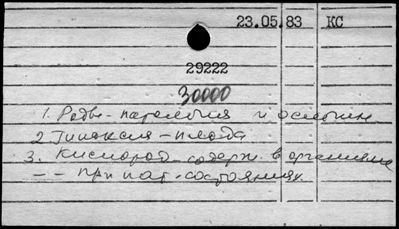 23.05.83 КС
29222
30000
1. Родв - патология и осложн
2 Гипоксия - плода
3. Кислород - содерж. в организме
- - При пат. состояниях